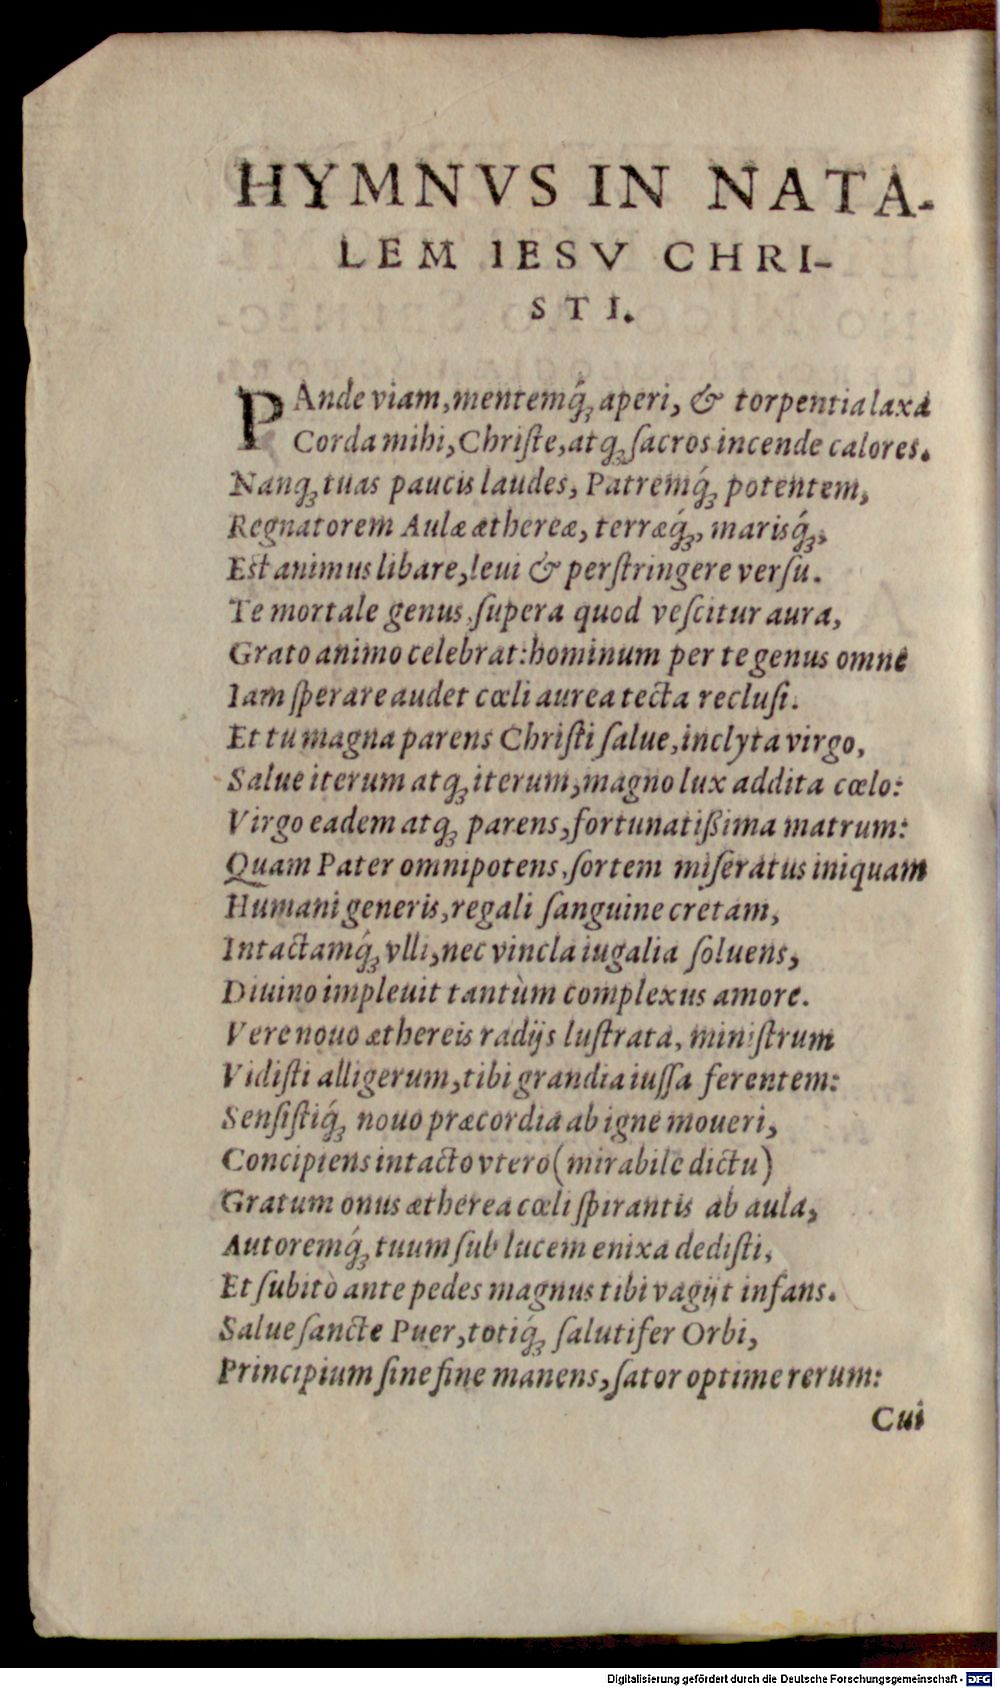 HYMNVS IN NATA-
LEM IESV CHRI-
STI.
PAnde viam, mentemq́ꝫ aperi, & torpentia laxa
Corda mihi, Chriſte, atqꝫ ſacros incende calores.
Nanqꝫ tuas paucis laudes, Patremq́ꝫ potentem,
Regnatorem Aulæ æthereæ, terræq́ꝫ, marisq́ꝫ,
Est animus libare, leui & perſtringere verſu.
Te mortale genus, ſupera quod veſcitur aura,
Grato animo celebrat: hominum per te genus omne
Iam ſperare audet cœli aurea tecta recluſi.
Et tu magna parens Chriſti ſalue, inclyta virgo,
Salue iterum atqꝫ iterum, magno lux addita cœlo:
Virgo eadem atqꝫ parens, fortunatißima matrum:
Quam Pater omnipotens, ſortem miſeratus iniquam
Humani generis, regali ſanguine cretam,
Intactamq́ꝫ vlli, nec vincla iugalia ſoluens,
Diuino impleuit tantùm complexus amore.
Vere nouo æthereis radijs luſtrata, miniſtrum
Vidiſti alligerum, tibi grandia iuſſa ferentem:
Senſiſtiq́ꝫ nouo præcordia ab igne moueri,
Concipiens intacto vtero (mirabile dictu)
Gratum onus ætherea cœli ſpirantis ab aula,
Autoremq́ꝫ tuum ſub lucem enixa dediſti,
Et ſubitò ante pedes magnus tibi vagijt infans.
Salue ſancte Puer, totiq́ꝫ ſalutifer Orbi,
Principium ſine fine manens, ſator optime rerum:
Cui
Digitalisierung gefördert durch die Deutsche Forschungsgemeinschaft - DFG